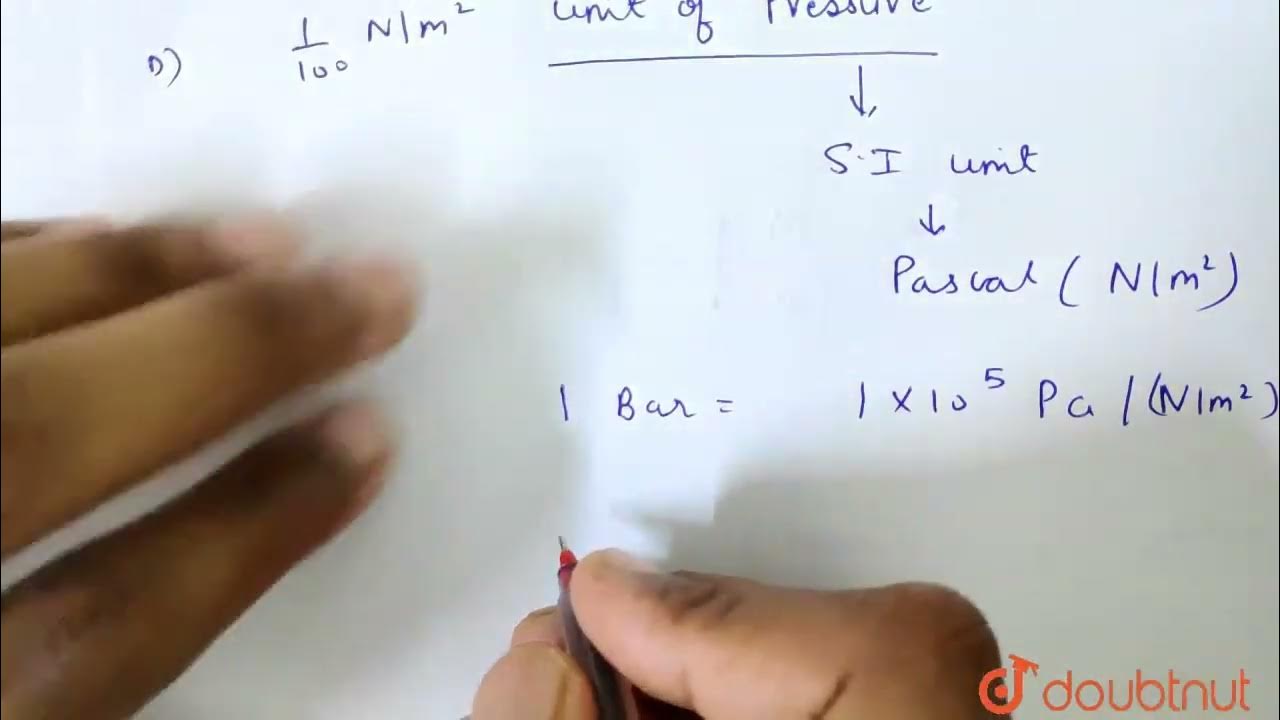 D) 1/100 N/m² Unit of Pressure
↓
S.I unit
↓
Pascal ( N/m²)
1 Bar = 1 × 10⁵ Pa / (N/m²)
doubtnut